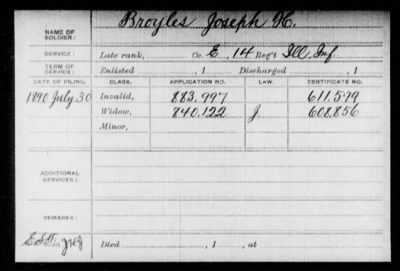 NAME OF SOLDIER: Broyles Joseph H.
SERVICE: Late rank, Co. E, 14 Reg't Ill. Inf.
TERM OF SERVICE: Enlisted , 1 Discharged , 1
DATE OF FILING. CLASS. APPLICATION NO. LAW. CERTIFICATE NO.
1890 July 30 Invalid, 883.997 611.599
Widow, 840.122 J. 608.856
Minor,
ADDITIONAL SERVICES:
REMARKS:
Died , 1 , at